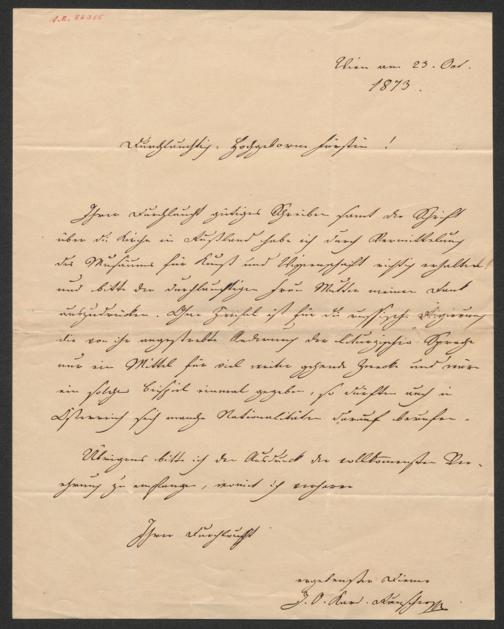 Wien am 23. Oct.
1873.
Durchlauchtig-Hochgeborne Fürstin!
Ihrer Durchlaucht gütiges Schreiben samt der Schrift
über die Kirche in Rußland habe ich durch Vermittelung
des Museums für Kunst und Wissenschaft richtig erhalten
und bitte der durchlauchtigen Frau Mutter meinen Dank
auszudrücken. Ohne Zweifel ist für die russische Regierung
die von ihr angestrebte Aenderung der liturgischen Sprache
nur ein Mittel für viel weiter gehende Zwecke und wäre
ein solches Beispiel einmal gegeben, so dürften auch in
Österreich sich manche Nationalitäten darauf berufen.
Übrigens bitte ich den Ausdruck der vollkommensten Ver-
ehrung zu empfangen, womit ich verharre
Ihrer Durchlaucht
ergebenster Diener
J. O. Card. Rauscher